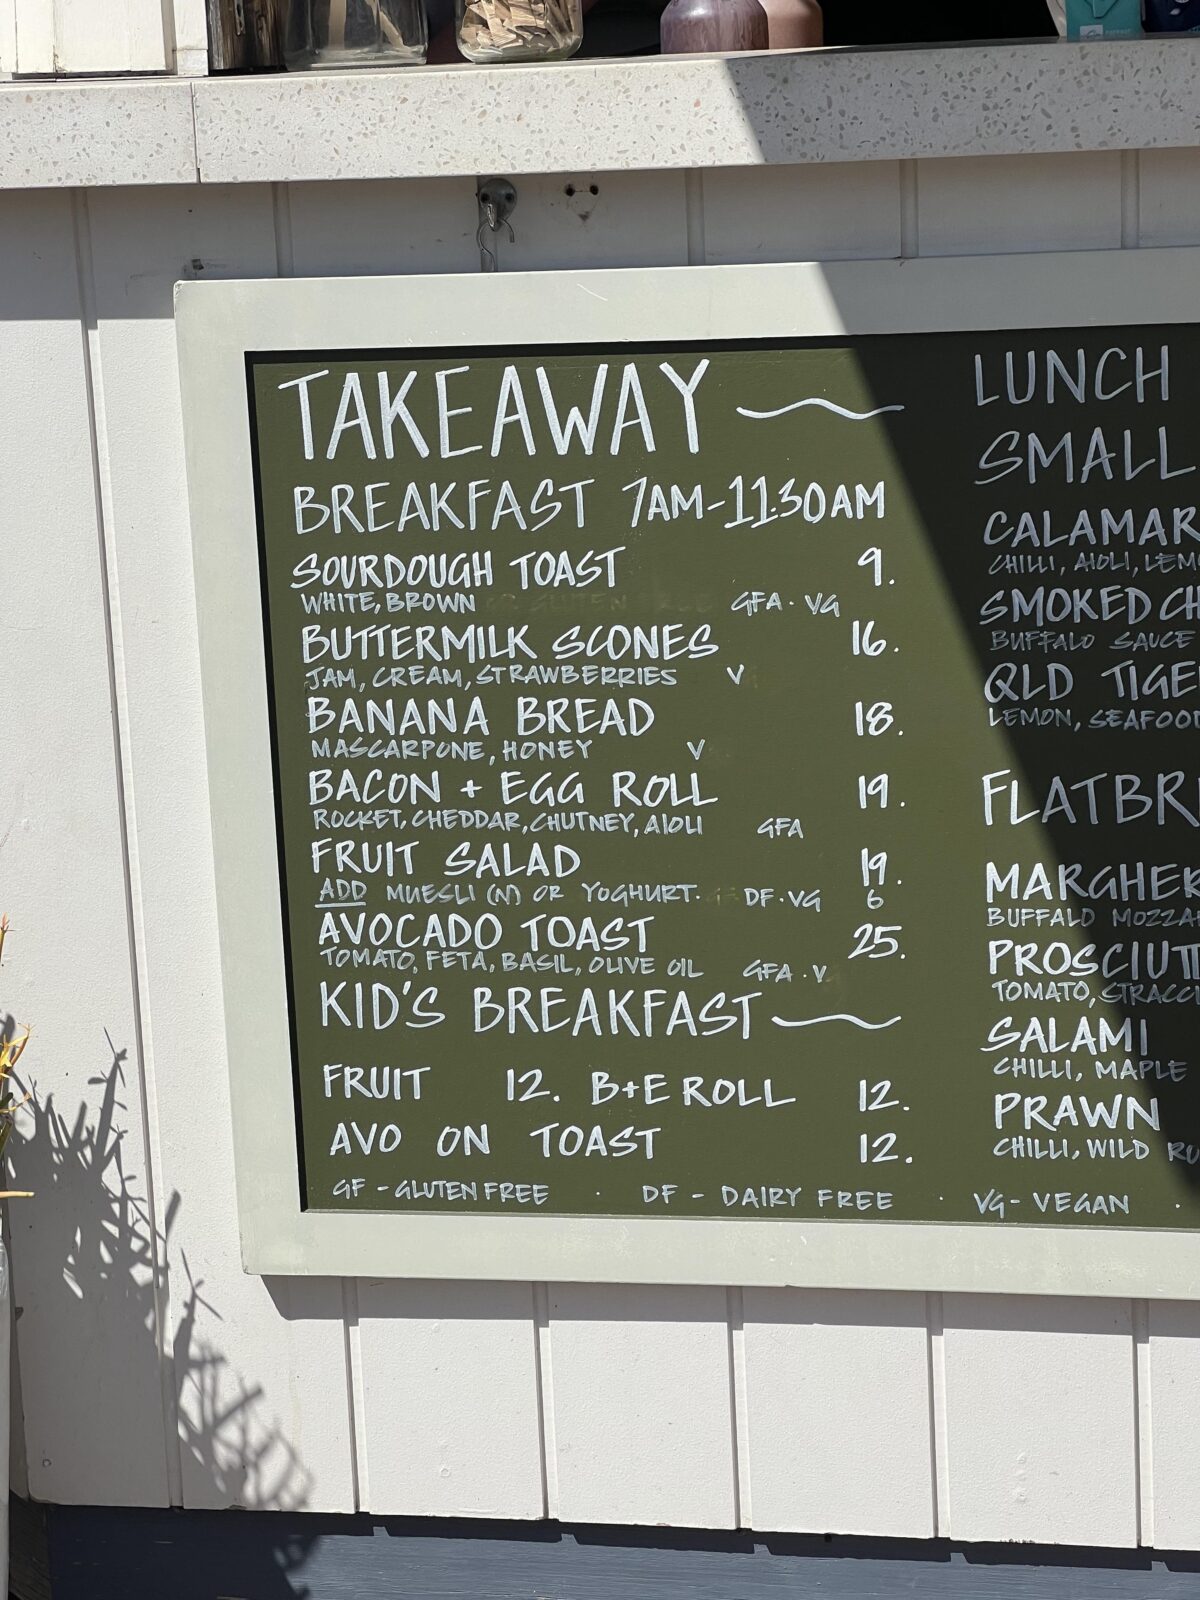 TAKEAWAY
BREAKFAST 7AM-11:30AM
SOURDOUGH TOAST 9.
WHITE, BROWN GFA · VG
BUTTERMILK SCONES 16.
JAM, CREAM, STRAWBERRIES V
BANANA BREAD 18.
MASCARPONE, HONEY V
BACON + EGG ROLL 19.
ROCKET, CHEDDAR, CHUTNEY, AIOLI GFA
FRUIT SALAD 19.
ADD MUESLI (N) OR YOGHURT. DF·VG 6
AVOCADO TOAST 25.
TOMATO, FETA, BASIL, OLIVE OIL GFA·V
KID'S BREAKFAST
FRUIT 12. B+E ROLL 12.
AVO ON TOAST 12.
GF - GLUTEN FREE · DF - DAIRY FREE · VG - VEGAN ·
LUNCH
SMALL
CALAMAR
CHILLI, AIOLI, LEM
SMOKED CH
BUFFALO SAUCE
QLD TIGE
LEMON, SEAFOO
FLATBR
MARGHER
BUFFALO MOZZA
PROSCIUTT
TOMATO, STRACCI
SALAMI
CHILLI, MAPLE
PRAWN
CHILLI, WILD RO